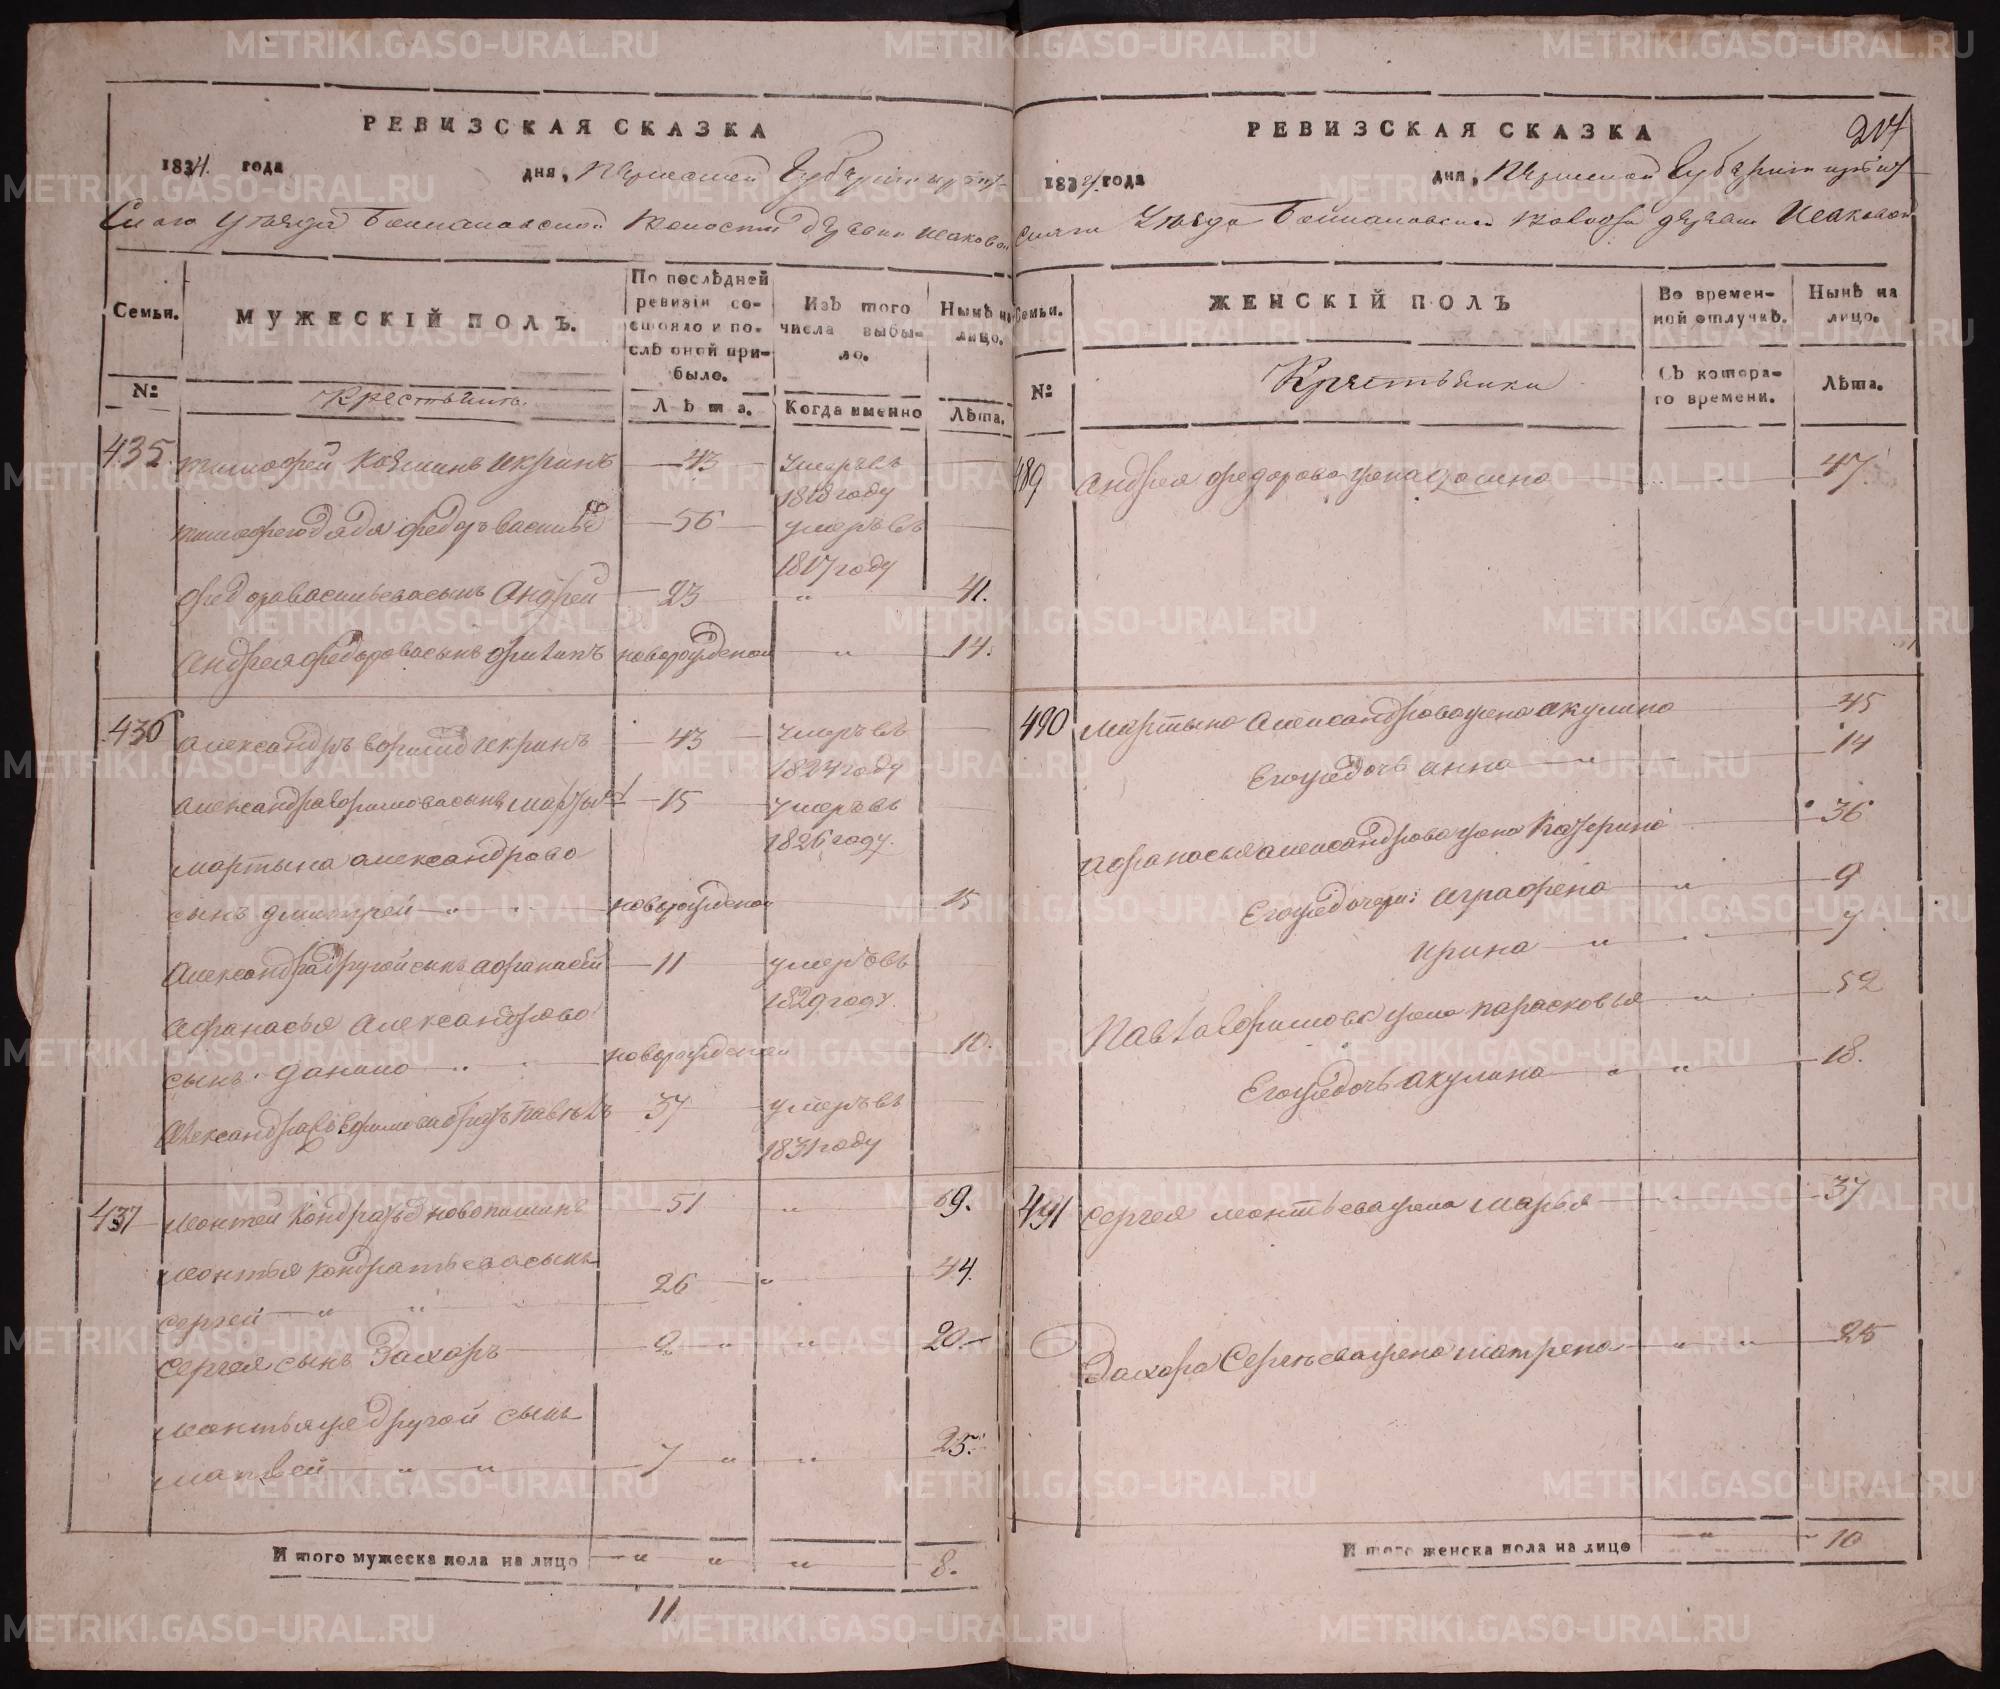 РЕВИЗСКАЯ СКАЗКА
1834. года дня, Пермской Губернии Ирбит-
скаго Уѣзда Волости Деревни Исаковой
Семьи.
МУЖЕСКІЙ ПОЛЪ.
По послѣдней ревизіи со-
стояло и по-
слѣ оной при-
было.
Изъ того
числа выбы-
ло.
Нынѣ на
лицо.
№
Крестьяне
Лѣта.
Когда именно
Лѣта.
435. Тимофей Козминъ Икринъ 43 умеръ въ
1818 году
Тимофея дядя Федоръ Василье 56 умеръ въ
1817 году
Федора Васильева сынъ Андрей 23 " 41.
Андрея Федорова сынъ Филипъ новорожденой " 14.
436 Александръ Икринъ 43 умеръ въ
1824 году
Александра сынъ Мартынъ 15 умеръ въ
1826 году.
Мартына Александрова
сынъ Дмитрей " новорожденой 15
Александра другой сынъ Афанасей 11 умеръ въ
1829 году.
Афанасья Александрова
сынъ Данило " новорожденой 10.
Александра братъ Павелъ 37 умеръ въ
1831 году
437 Леонтей Кондратьевъ 51 " 69.
Леонтья Кондратьева сынъ
Сергей " " 26 " 44.
Сергея сынъ Захаръ 2 " " 20.
Леонтья же другой сынъ
Матвей " " 7 " " 25.
Итого мужеска пола на лицо " " " 8.
11
РЕВИЗСКАЯ СКАЗКА
217
1834. года дня, Пермской Губернии Ирбит
Уѣзда Волости деревни Исаковой
Семьи.
ЖЕНСКІЙ ПОЛЪ
Во времен-
ной отлучкѣ.
Нынѣ на
лицо.
№
Крестьянки
Съ котора-
го времени.
Лѣта.
489 Андрея Федорова жена 47.
490 Мартына Александрова жена Акулина 45
Его же дочь Анна " 14
Афанасья Александрова жена Катерина 36
Его же дочери: Аграфена " 9
Ирина " 7
Павла жена Парасковья " 52
Его же дочь Акулина " " 18.
491 Сергея Леонтьева жена Марья " 37
Захара Сергеева жена Матрена " " 25
Итого женска пола на лицо " " 10
METRIKI.GASO-URAL.RU